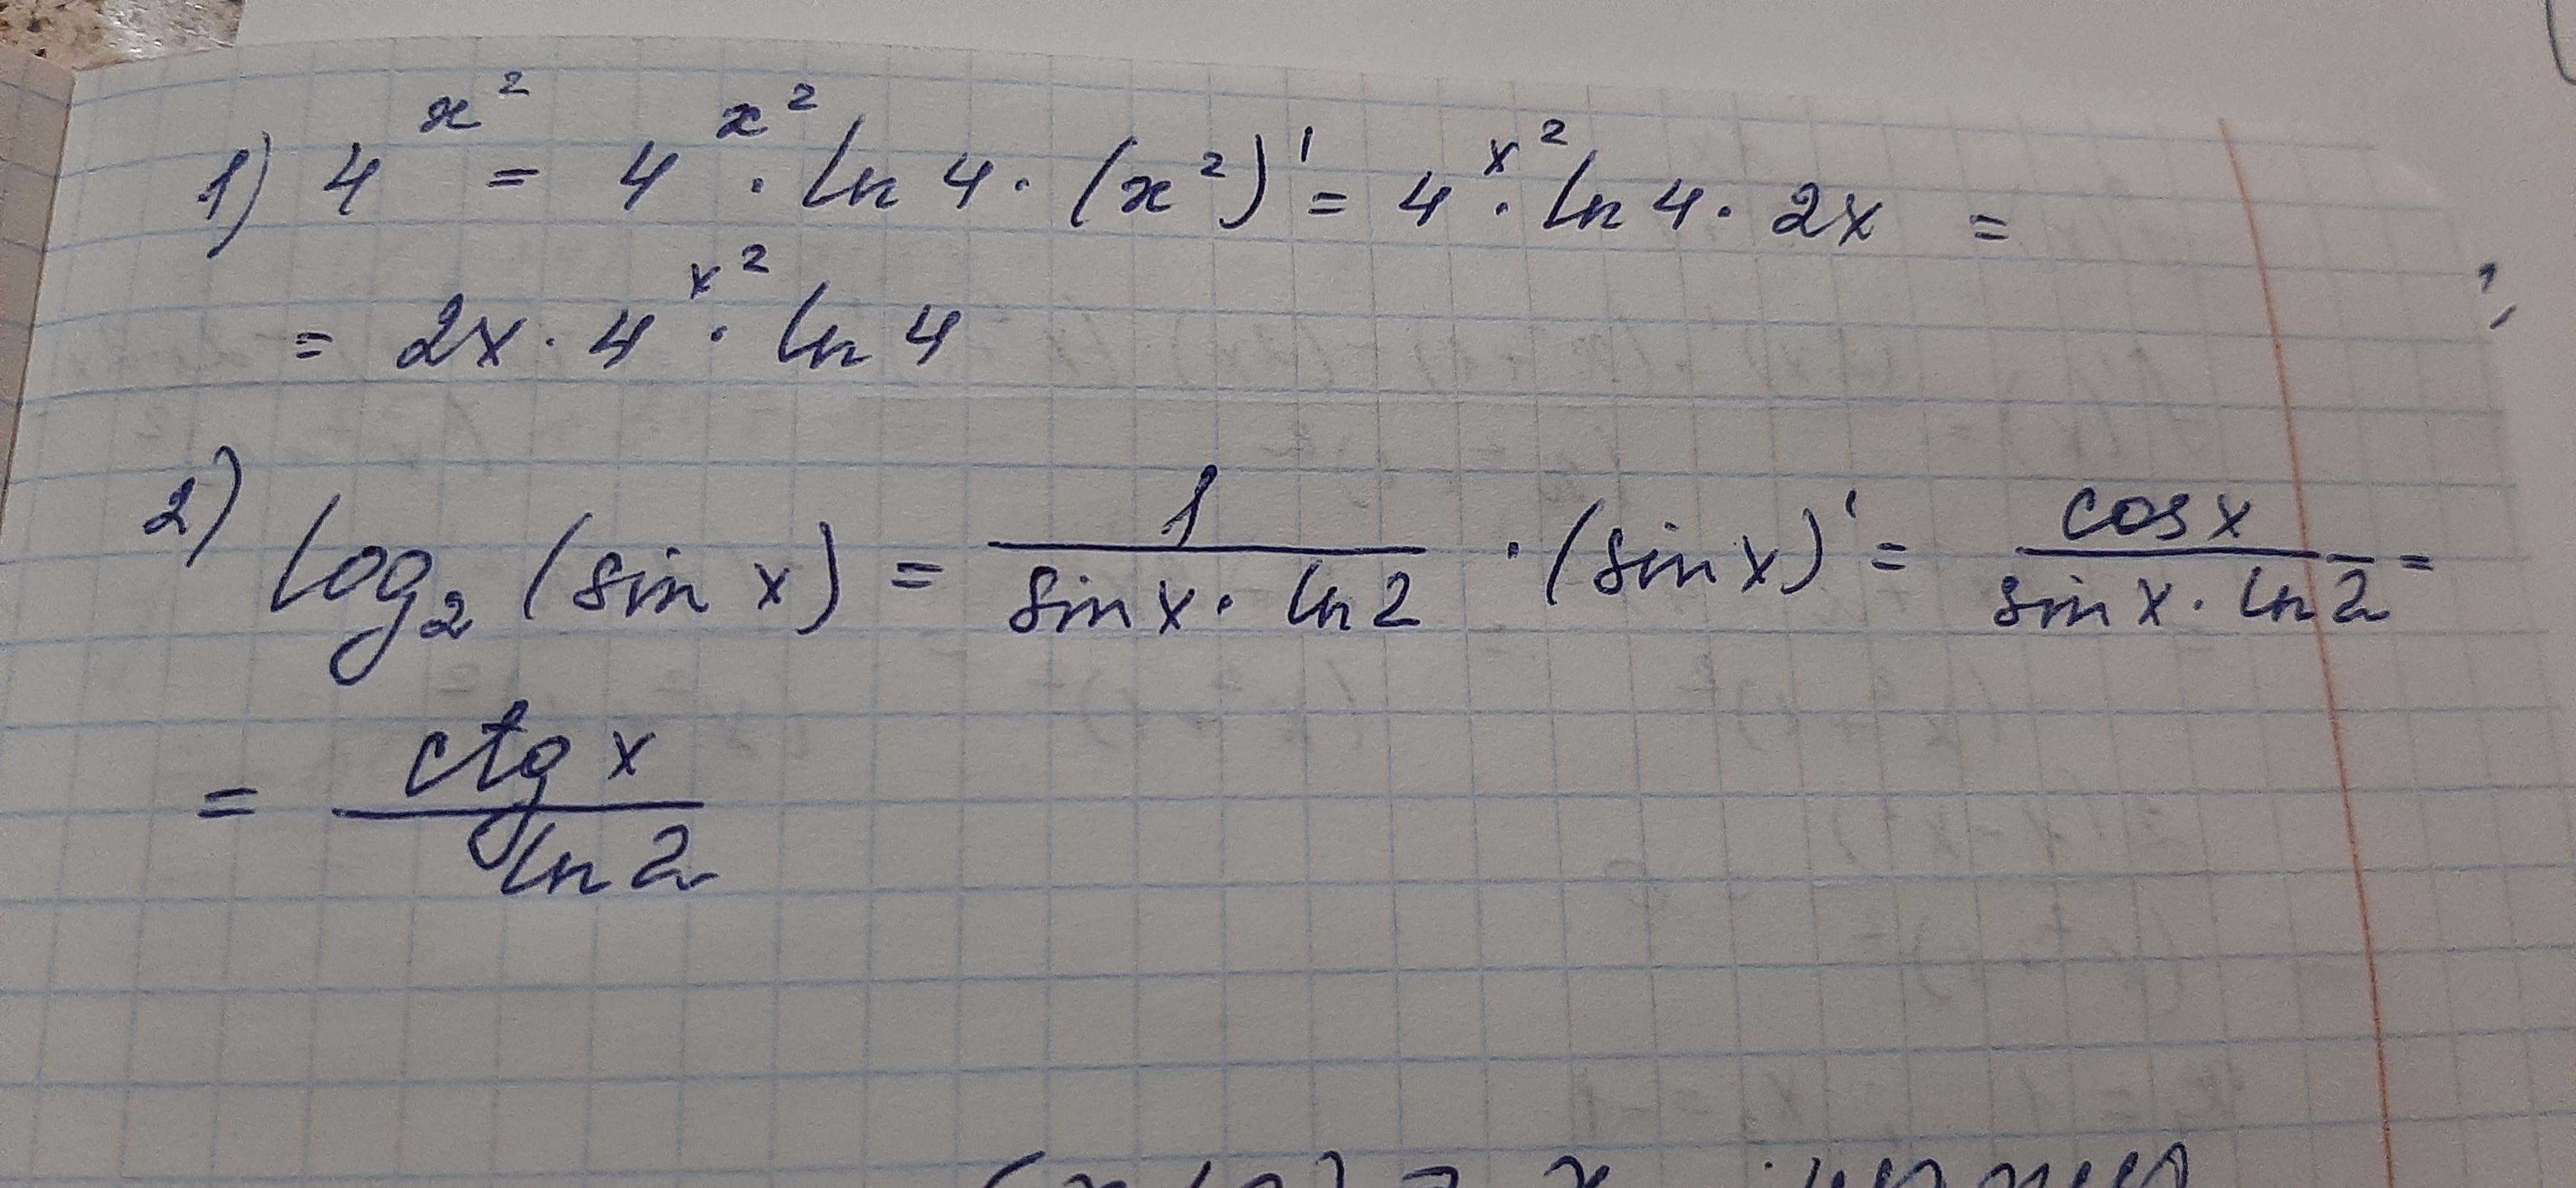 1) 4^{x^2} = 4^{x^2} · ln 4 · (x^2)' = 4^{x^2} · ln 4 · 2x =
= 2x · 4^{x^2} · ln 4
2) log_2 (sin x) = \frac{1}{sin x · ln 2} · (sin x)' = \frac{cos x}{sin x · ln 2} =
= \frac{ctg x}{ln 2}